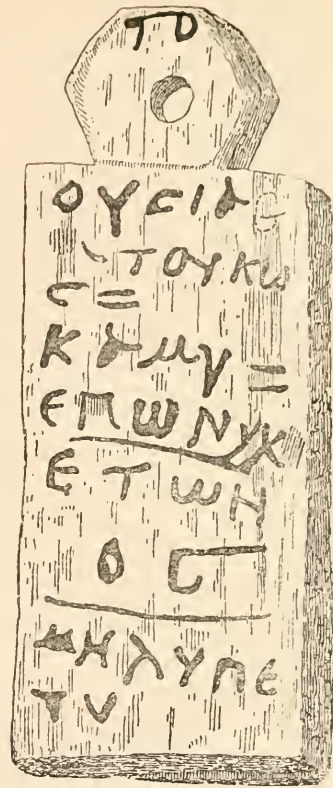 ΤΟ
ΟΥϹΙΑ
ΤΟΥΚω
Ϲ=
ΚΑΜΥ=
ΕΠωΝΥΧ
ΕΤωΝ
ΟϚ
ΜΗΛΥΠΕ
ΤΥ